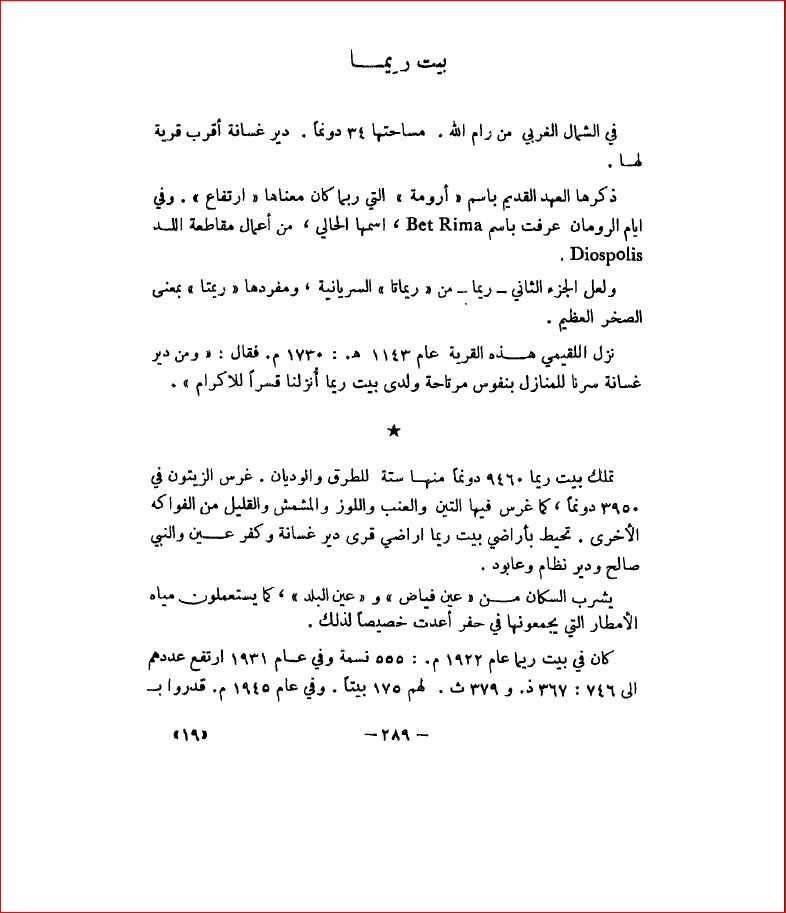 بيت ريمــا
في الشمال الغربي من رام الله . مساحتها ٣٤ دونماً . دير غسانة أقرب قرية
لهـا .
ذكرها العهد القديم باسم « أرومة » التي ربما كان معناها « ارتفاع » . وفي
ايام الرومان عرفت باسم Bet Rima ، اسمها الحالي ، من أعمال مقاطعة اللــد
Diospolis .
ولعل الجزء الثاني ــ ريما ــ من « ريماتا » السريانية ، ومفردها « ريمتا » بمعنى
الصخر العظيم .
نزل اللقيمي هــذه القرية عام ١١٤٣ هـ. : ١٧٣٠ م. فقال : « ومن دير
غسانة سرنا للمنازل بنفوس مرتاحة ولدى بيت ريما أُنزلنا قسراً للاكرام » .
★
تملك بيت ريما ٩٤٦٠ دونماً منهـا ستة للطرق والوديان . غرس الزيتون في
٣٩٥٠ دونماً ، كما غرس فيها التين والعنب واللوز والمشمش والقليل من الفواكه
الأخرى . تحيط بأراضي بيت ريما اراضي قرى دير غسانة وكفر عــين والنبي
صالح ودير نظام وعابود .
يشرب السكان مــن « عين فياض » و « عين البلد » ، كما يستعملون مياه
الأمطار التي يجمعونها في حفر أعدت خصيصاً لذلك .
كان في بيت ريما عام ١٩٢٢ م. : ٥٥٥ نسمة وفي عـام ١٩٣١ ارتفع عددهم
الى ٧٤٦ : ٣٦٧ ذ. و ٣٧٩ ث . لهم ١٧٥ بيتاً . وفي عام ١٩٤٥ م. قدروا بــ
– ٢٨٩ – «١٩»